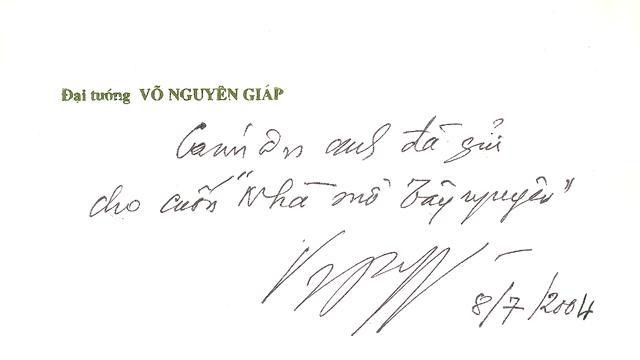 Đại tướng VÕ NGUYÊN GIÁP
Cám ơn anh đã gửi
cho cuốn "Nhà mồ Tây nguyên"
8/7/2004